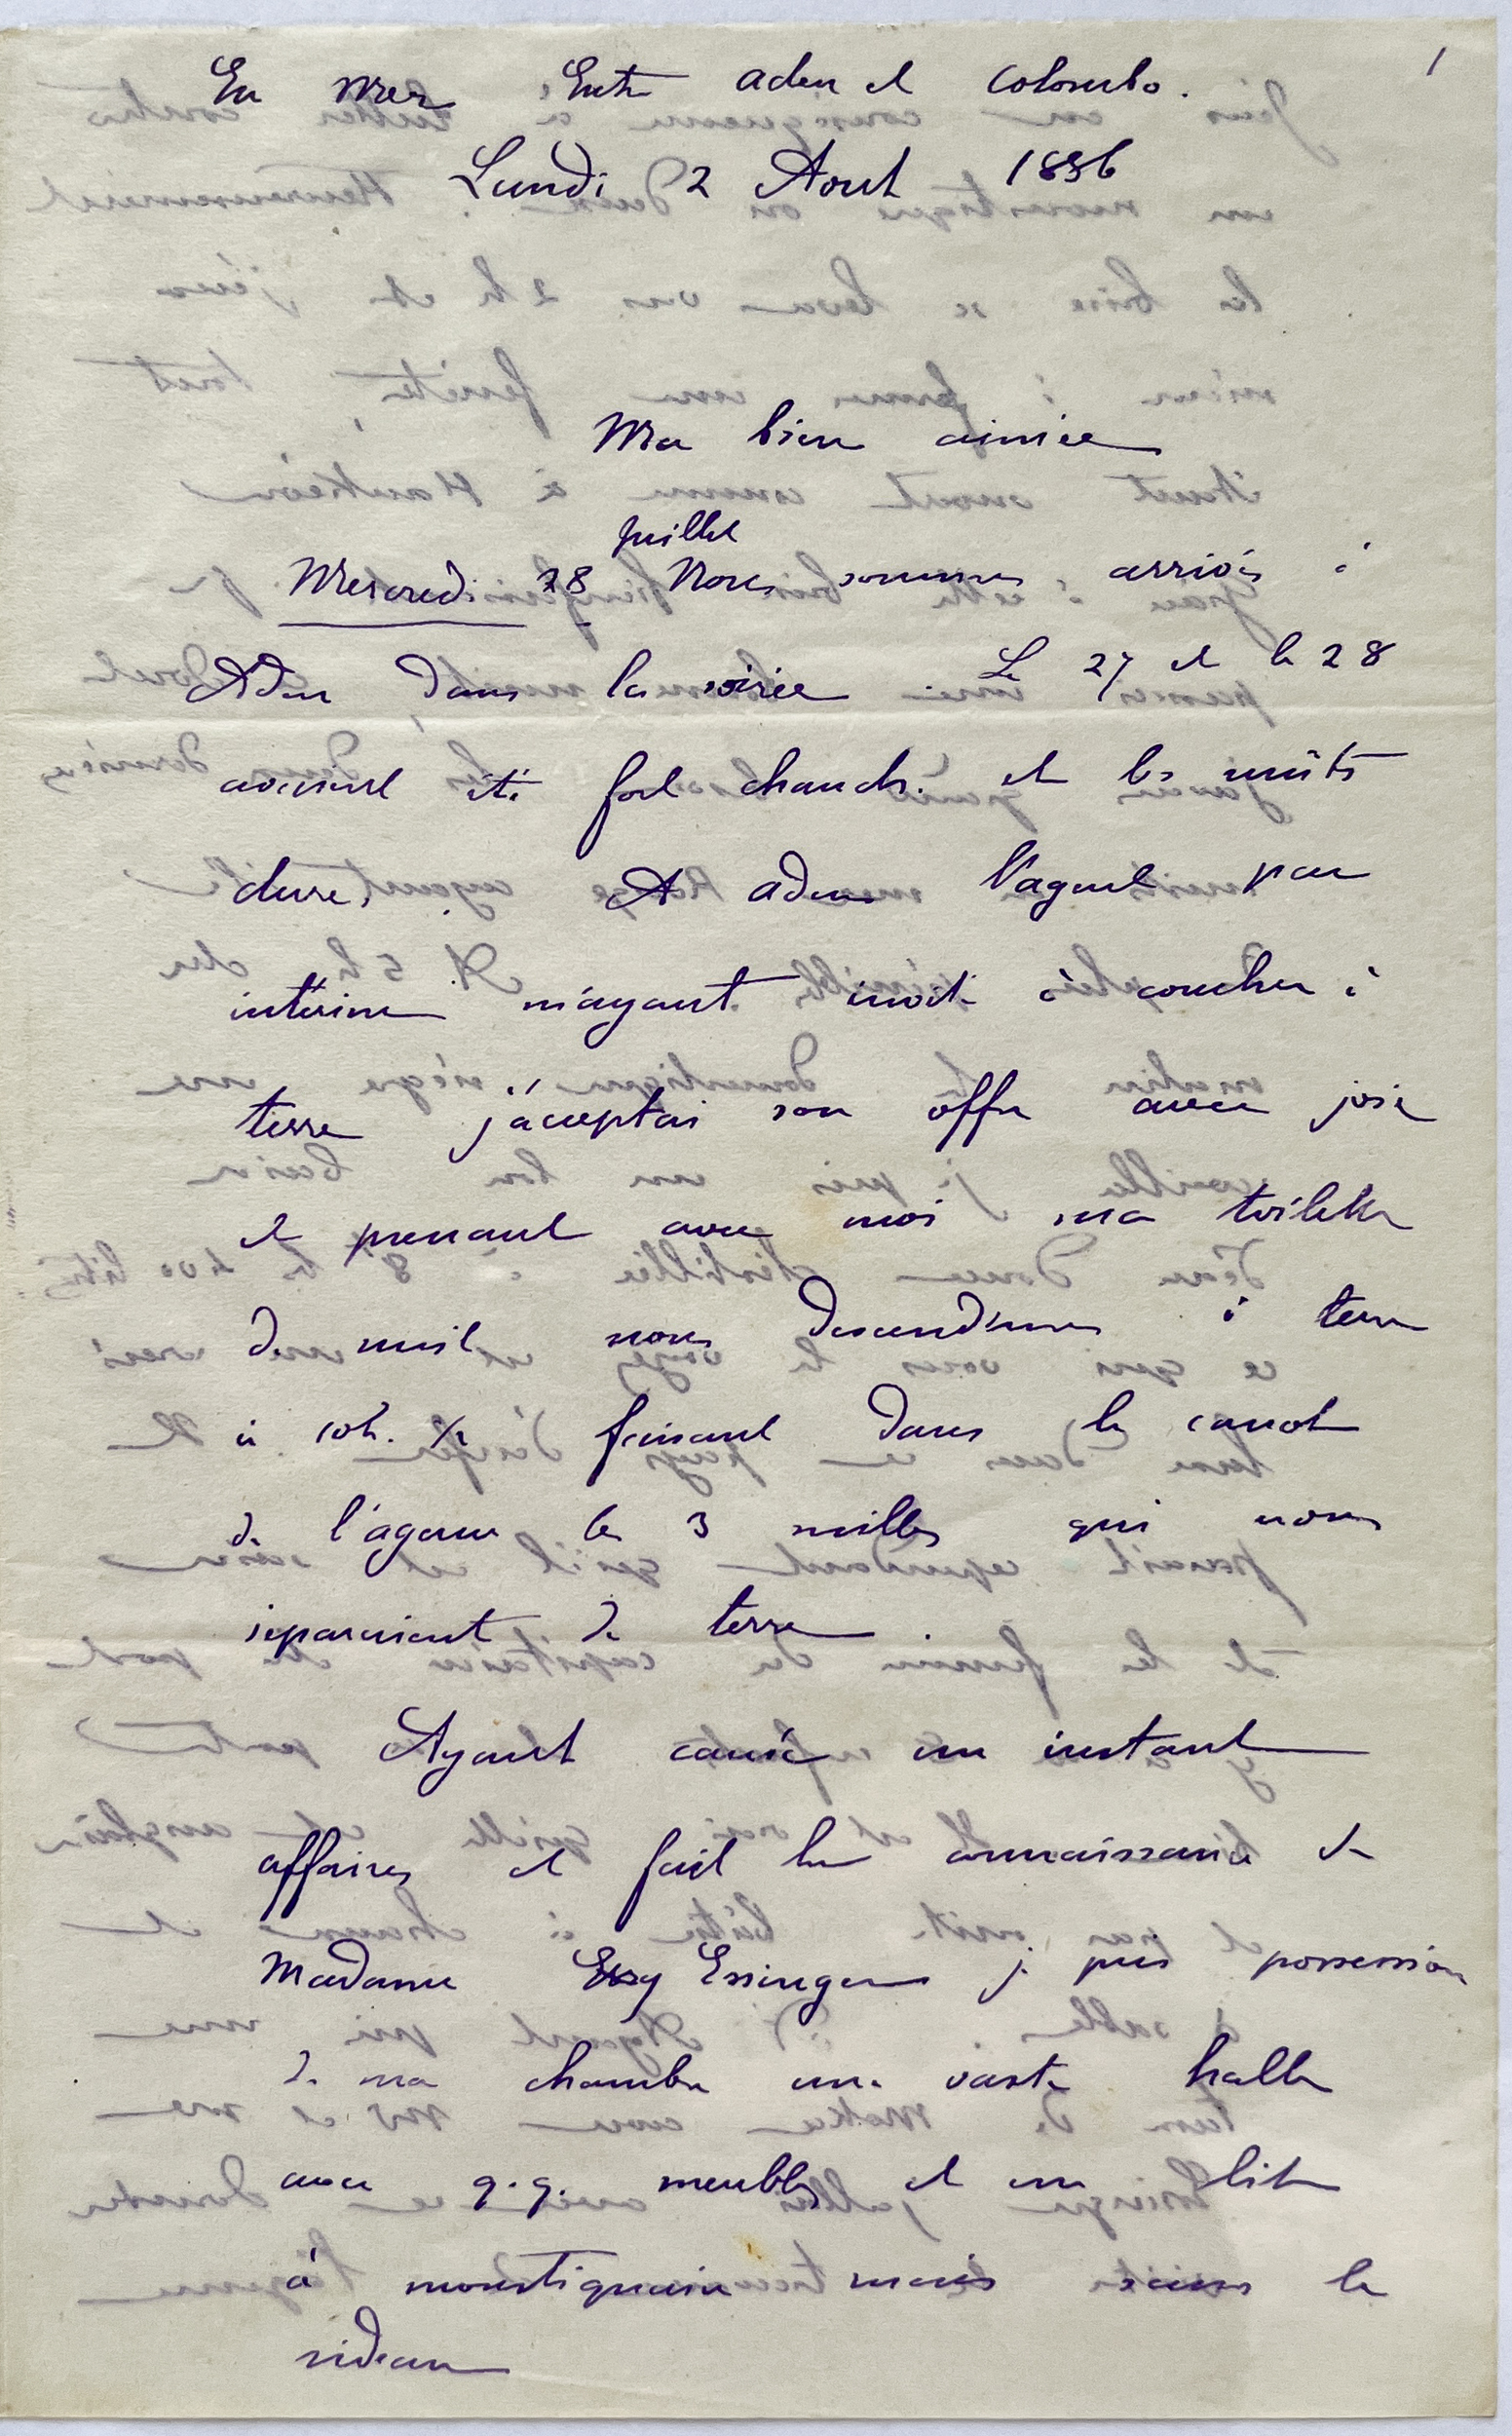 1
En mer Entre Aden et Colombo.
Lundi 2 Aout 1886
Ma bien aimée
juillet
Mercredi 28 Nous sommes arrivés à
Aden dans la soirée. Le 27 et le 28
avaient été fort chauds et les nuits
dures. A Aden l'agent par
intérim m'ayant invité à coucher à
terre j'acceptai son offre avec joie
et prenant avec moi ma toilette
de nuit nous descendimes à terre
à 10h. ½ faisant dans le canot
de l'agence les 3 milles qui nous
séparaient de terre.
Ayant causé un instant
affaires et fait la connaissance de
Madame Essinger je pris possession
de ma chambre une vaste halle
avec q.q. meubles et un lit
à moustiquaire mais sans le
rideau